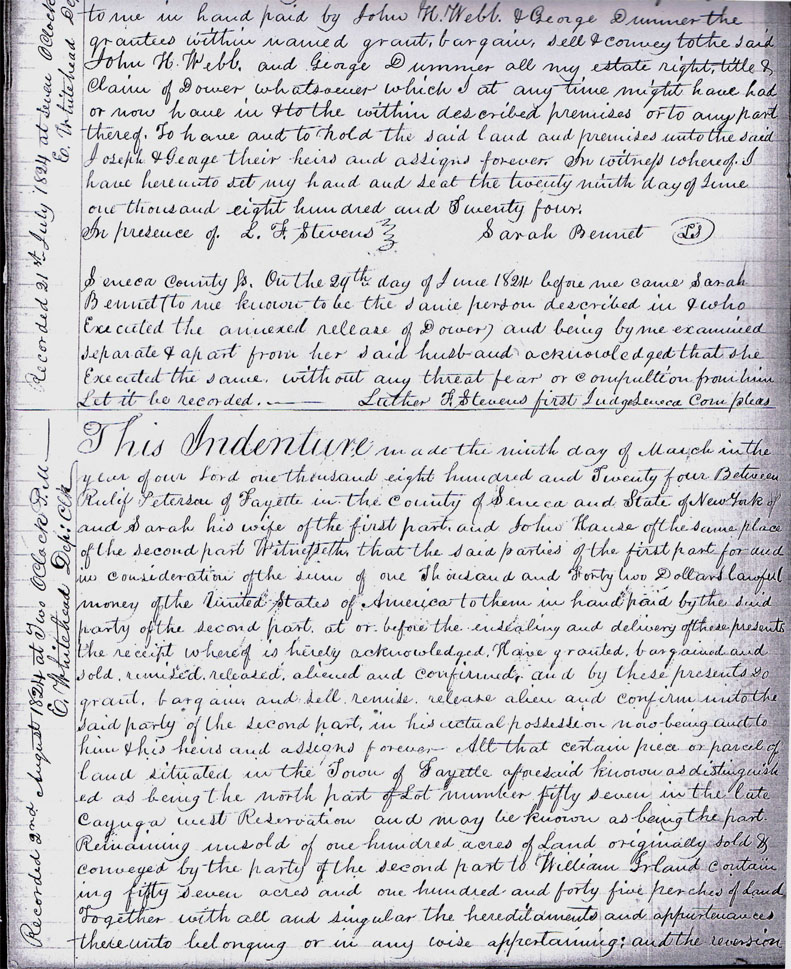 to me in hand paid by John H. Webb. & George Dummer the
grantees within named grant, bargain, sell & convey to the said
John H. Webb. and George Dummer all my estate right, title &
Claim of Dower whatsoever which I at any time might have had
or now have in & to the within described premises or to any part
thereof. To have and to hold the said land and premises unto the said
Joseph & Geoage their heirs and assigns forever. In witness whereof. I
have hereunto set my hand and seal the twenty ninth day of June
one thousand eight hundred and Twenty four.
In presence of. L. F. Stevens Sarah Bennet LS
Seneca County Ss. On the 29th day of June 1824 before me came Sarah
Bennet (to me known to be the same person described in & who
Executed the annexed release of Dower) and being by me examined
separate & apart from her said husband acknowledged that she
Executed the same. without any threat fear or compultion from him
Let it be recorded. Luther F. Stevens first Judge Seneca Com pleas
Recorded 21st July 1824 at seven OClock
E. Whitehead De
This Indenture made the ninth day of March in the
year of our Lord one thousand eight hundred and Twenty four Between
Rulif Peterson of Fayette in the County of Seneca and State of New York of
and Sarah his wife of the first part, and John Hause of the same place
of the second part Witnesseth, that the said parties of the first part for and
in consideration of the sum of one Thousand and Forty two Dollars lawful
money of the United States of America to them in hand paid by the said
party of the second part. at or before the ensealing and delivery of these presents
the receipt whereof is hereby acknowledged, Have granted, bargained and
sold, remised, released, aliened and confirmed, and by these presents do
grant, bargain, and sell, remise, release alien and confirm unto the
said party of the second part, in his actual possession now being and to
him & his heirs and assigns forever All that certain piece or parcel of
land situated in the Town of Fayette aforesaid known as distinguish
ed as being the north part of Lot number fifty seven in the late
Cayuga west Reservation and may be known as being the part
Remaining unsold of one hundred acres of Land originally sold &
conveyed by the party of the second part to William Irland contain
ing fifty seven acres and one hundred and forty five perches of Land
Together with all and singular the hereditaments and appurtenances
thereunto belonging or in any wise appertaining; and the reversion
Recorded 2nd August 1824 at Two OClock P.M.
E. Whitehead Dep: Clk